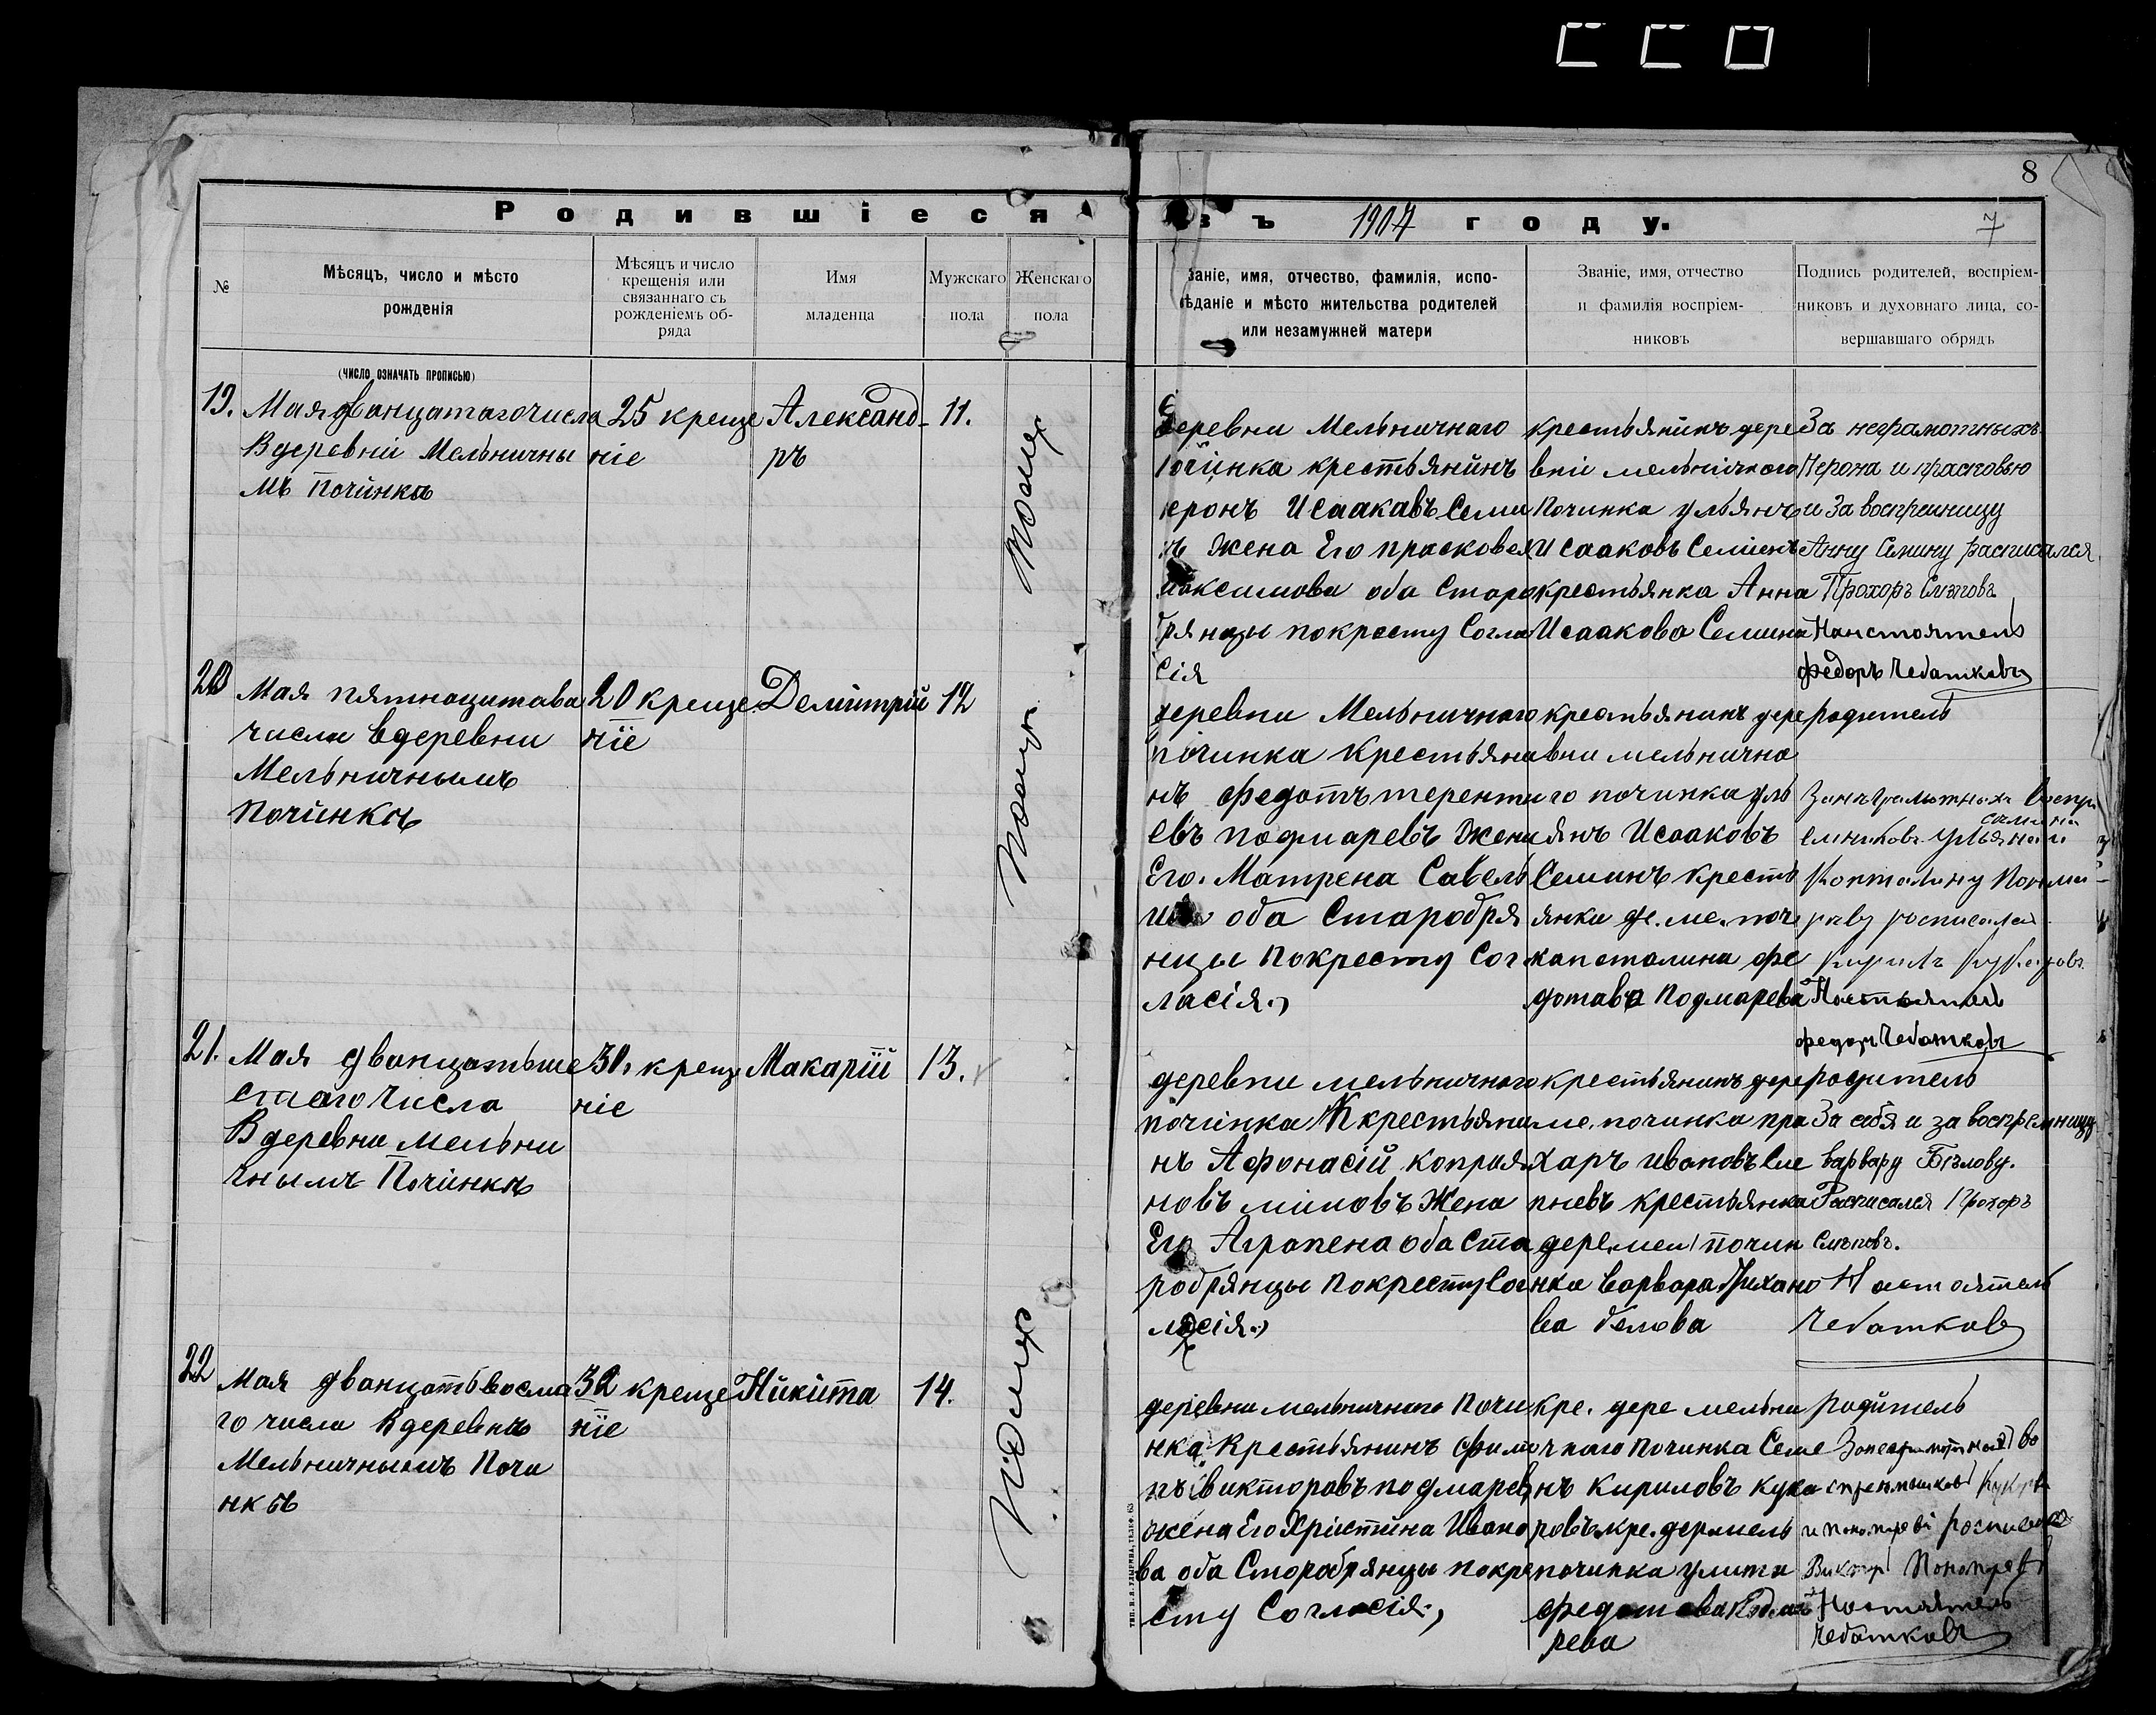 8
Родившіеся въ 1907 году.
7
№
Мѣсяцъ, число и мѣсто
рожденія
(число означать прописью)
Мѣсяцъ и число
крещенія или
связаннаго съ
рожденіемъ об-
ряда
Имя
младенца
Мужскаго
пола
Женскаго
пола
Званіе, имя, отчество, фамилія, испо-
вѣданіе и мѣсто жительства родителей
или незамужней матери
Званіе, имя, отчество
и фамилія воспріем-
никовъ
Подпись родителей, воспріем-
никовъ и духовнаго лица, со-
вершавшаго обрядъ
19.
Мая дванцатаго числа
В деревни Мельничны
мъ Починкѣ
25 креще
ніе
Александ-
ръ
11.
деревни Мельничного
Починка крестьянинъ
неронъ Исаакавъ Семи
нъ жена Его прасковея
Максимова оба Старо
брянцы покресту Согла
Сія
крестьянинъ дере
вни мельничного
Починка ульянъ
Исааковъ Семинъ
крестьянка Анна
Исаакова Семина
За неграмотныхъ
Нерона и прасковью
и За воспреиницу
Анну Семину расписался
Прохоръ Слѣповъ
Настоятель
Федоръ Чебатковъ
20
Мая пятнацатава
числа вдеревни
Мельничнымъ
Починкѣ
20 креще
ніе
Демитрій
12
деревни Мельничного
починка Крестьяни
нъ Федотъ теренти
евъ подмаревъ жена
Его. Матрена Савель
ива оба Старобря
нцы Покресту Сог
ласія.,
крестьянинъ дере
вни мельнично
го починка уль
янъ Исааковъ
Семинъ кресть
янка де. ме. поч
капсталина Фе
дотава Подмарева
родитель
Семина
росписался
Настоятель
Федоръ Чебатковъ
21.
Мая дванцатьше
стаго Числа
В деревни Мельни
чнымъ Починкѣ
30. крещ
ніе
Макарій
13.
деревни мельничного
починка крестьяни
нъ Афонасій коприя
новъ миловъ Жена
Его Аграпена оба Ста
робрянцы покресту Сог
ласія.,
крестьянинъ дере
ме. починка про
харъ ивановъ Сле
пневъ крестьянка
дере. мел. почин
нка Варвара
ва белова
родитель
За себя и за воспремницу
варвару Бѣлову.
Расписался Прохоръ
Слѣповъ.
Настоятель
Чебатковъ
22
Мая дванцать восма
го числа В деревнѣ
Мельничнымъ Почи
нкѣ
32 креще
ніе
Никита
14.
деревни мельничного Почи
нка Крестьянинъ Филип
пъ викторовъ подмаревъ
жена Его Христина Ивано
ва оба Старобрянцы покре
сту Согласія.,
кре. дере мельни
чнаго починка Семе
нъ Кириловъ кука
ровъ кре. дер мель
починка улита
Федотова Подма
рева
родитель
Викторъ
Настоятель
Чебатковъ